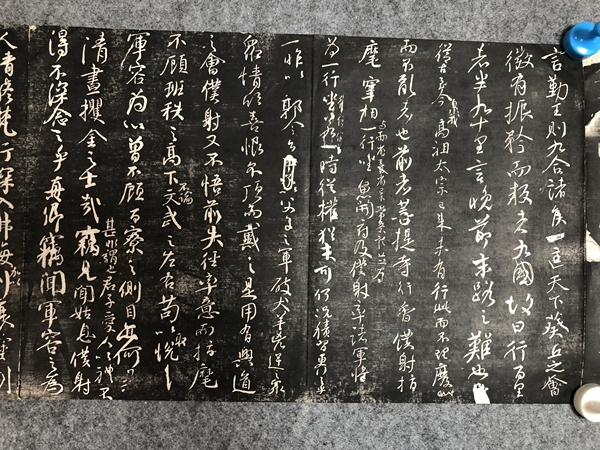 言勤王則九合諸侯一匡天下葵丘之會
微有振矜而叛者九國故曰行百里
者半九十里言晚節末路之難也
從古至今暨我高祖太宗已來未有行此而不理廢此
而不亂者也前者菩提寺行香僕射指
麾宰相與兩省臺省已下常參官並為一行坐魚開府及僕射率諸軍將
為一行坐若一時從權亦猶未可何況積習更行之乎
一昨以郭令公以父子之軍破犬羊凶逆之眾
眾情欣喜恨不頂而戴之是用有興道
之會僕射又不悟前失徑率意而指麾
不顧班秩之高下不論文武之左右苟以取悅
軍容為心曾不顧百寮之側目亦何異
清晝攫金之士哉甚非謂也君子愛人以禮不竊見聞姑息僕射
得不深念之乎真卿竊聞軍容之為
人清修梵行深入佛海況乎收東